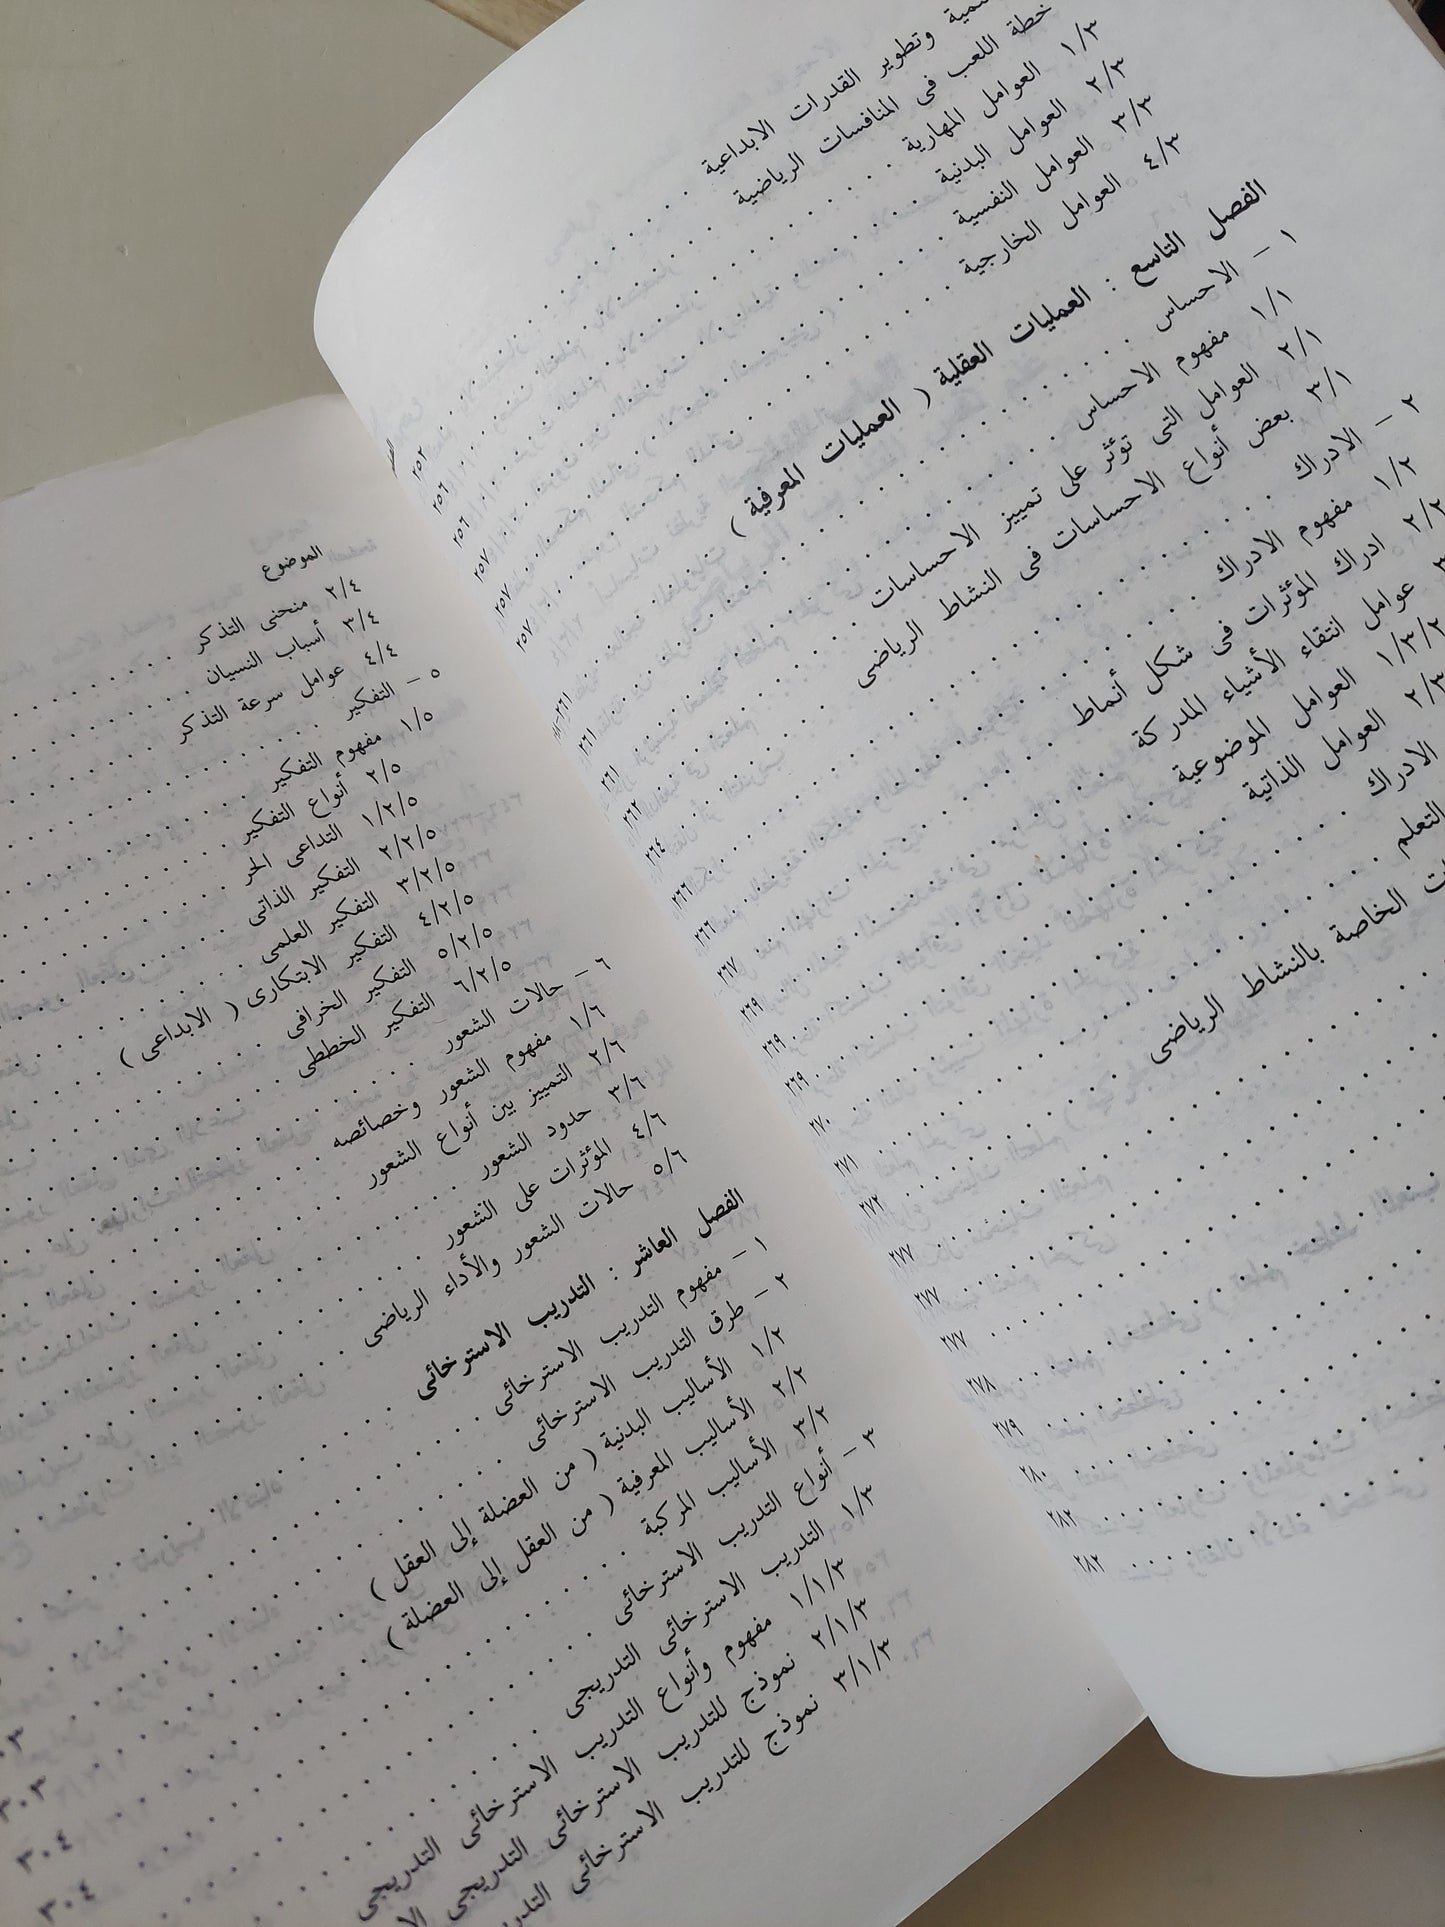 وتطوير القدرات الابداعية
خطة اللعب فى المنافسات الرياضية
١/٣ العوامل المهارية
٢/٣ العوامل البدنية
٣/٣ العوامل النفسية
٤/٣ العوامل الخارجية
الفصل التاسع : العمليات العقلية ( العمليات المعرفية )
١ - الاحساس
١/١ مفهوم الاحساس
٢/١ العوامل التى تؤثر على تمييز الاحساسات
٣/١ بعض أنواع الاحساسات فى النشاط الرياضى
٢ - الادراك
١/٢ مفهوم الادراك
٢/٢ ادراك المؤثرات فى شكل أنماط
عوامل انتقاء الأشياء المدركة
١/٣/٢ العوامل الموضوعية
العوامل الذاتية
الادراك
التعلم
الخاصة بالنشاط الرياضى
٢٥٢
٢٥٦
٢٥٦
٢٥٧
٢٥٧
٢٥٧
٢٦١
٢٦١
٢٦٢
٢٦٤
٢٦٦
٢٦٦
٢٦٧
٢٦٩
٢٦٩
٢٦٩
٢٧٠
٢٧١
٢٧٢
٢٧٧
٢٧٧
٢٧٧
٢٧٨
٢٧٩
٢٨٠
٢٨٢
٢٨٢
الموضوع
٢/٤ منحنى التذكر
٣/٤ أسباب النسيان
٤/٤ عوامل سرعة التذكر
٥ - التفكير
١/٥ مفهوم التفكير
٢/٥ أنواع التفكير
١/٢/٥ التداعى الحر
٢/٢/٥ التفكير الذاتى
٣/٢/٥ التفكير العلمى
٤/٢/٥ التفكير الابتكارى ( الابداعى )
٥/٢/٥ التفكير الخرافى
٦/٢/٥ التفكير الخططى
٦ - حالات الشعور
١/٦ مفهوم الشعور وخصائصه
٢/٦ التمييز بين أنواع الشعور
٣/٦ حدود الشعور
٤/٦ المؤثرات على الشعور
٥/٦ حالات الشعور والأداء الرياضى
الفصل العاشر : التدريب الاسترخائى
١ - مفهوم التدريب الاسترخائى
٢ - طرق التدريب الاسترخائى
١/٢ الأساليب البدنية ( من العضلة إلى العقل )
٢/٢ الأساليب المعرفية ( من العقل إلى العضلة )
٣/٢ الأساليب المركبة
٣ - أنواع التدريب الاسترخائى
١/٣ التدريب الاسترخائى التدريجى
١/١/٣ مفهوم وأنواع التدريب الاسترخائى التدريجى
٢/١/٣ نموذج للتدريب الاسترخائى التدريجى
٣/١/٣ نموذج للتدريب الاسترخائى
٣٠٣
٣٠٤
٣٠٤